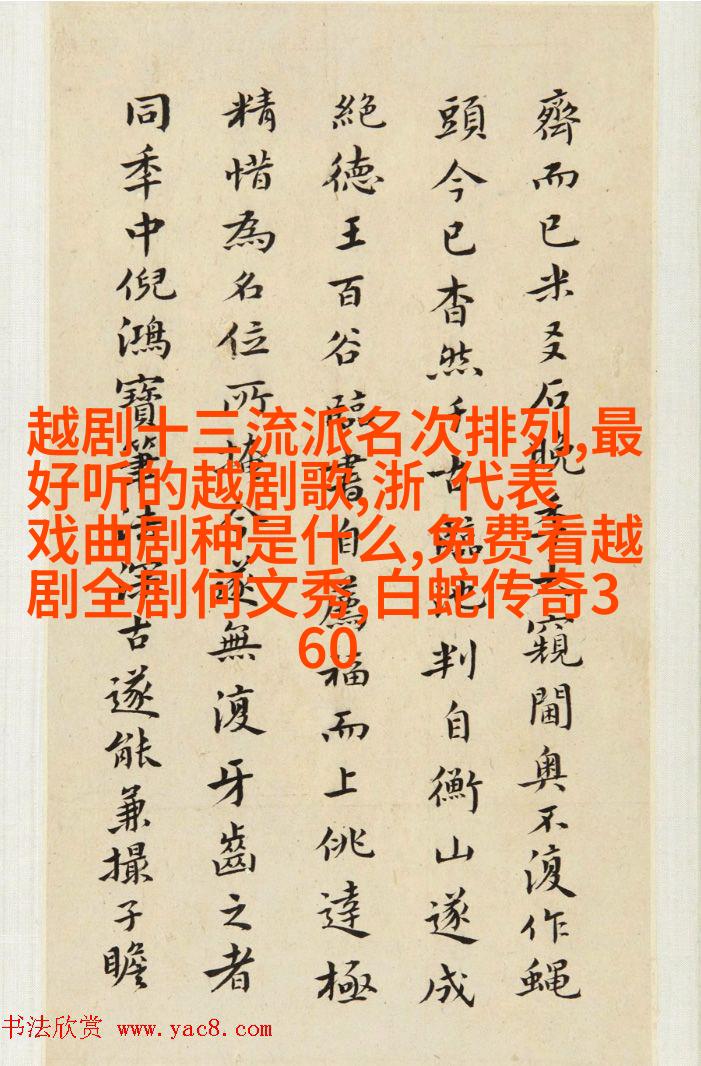 齊而已米叉石晚窺閫奧不復作蝇
頭今已杳然千古臨池判自衡山遂成
絶德王百谷臨書自薦福而上佻達極
精惜為名位所掩今遂無復牙齒之者
同季中倪鴻寶筆法深古遂能兼撮子瞻
越剧十三流派名次排列,最
好听的越剧歌,浙 代表
戏曲剧种是什么,免费看越
剧全剧何文秀,白蛇传奇3
60
书法欣赏 www.yac8.com